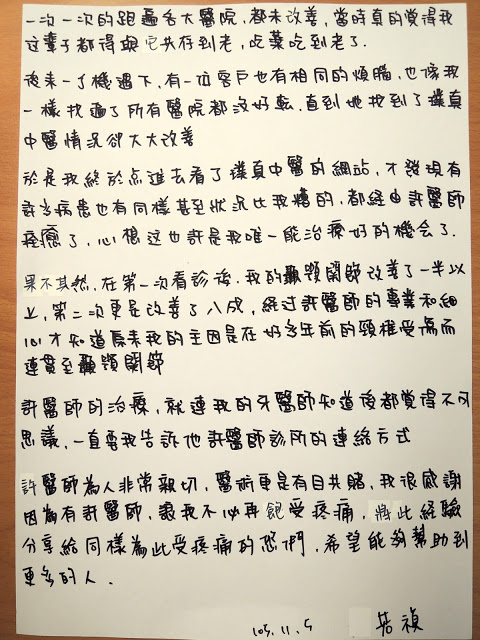 一次一次的跑遍各大醫院，都未改善，當時真的覺得我
这輩子都得與它共存到老，吃藥吃到老了．
後來一个機遇下，有一位客戶也有相同的煩腦，也像我
一樣找遍了所有醫院都沒好転．直到她找到了璞真
中醫情況卻大大改善
於是我終於点進去看了璞真中醫的網站，才發現有
許多病患也有同樣甚至狀況比我糟的，都經由許醫師
痊癒了，心想这也許是我唯一能治療好的機会了．
果不其然，在第一次看診後．我的顳顎関節改善了一半以
上，第二次更是改善了八成，経过許醫師的專業和細
心才知道原來我的主因是在好多年前的頸椎受傷而
連貫至顳顎関節
許醫師的治療，就連我的牙醫師知道後都覺得不可
思議，一直要我告訴他許醫師診所的連絡方式
許醫師為人非常親切，醫術更是有目共睹，我很感謝
因為有許醫師，讓我不必再飽受疼痛，將此経驗
分享給同樣為此受疼痛的您們，希望能夠幫助到
更多的人．
105.11.5 若禎